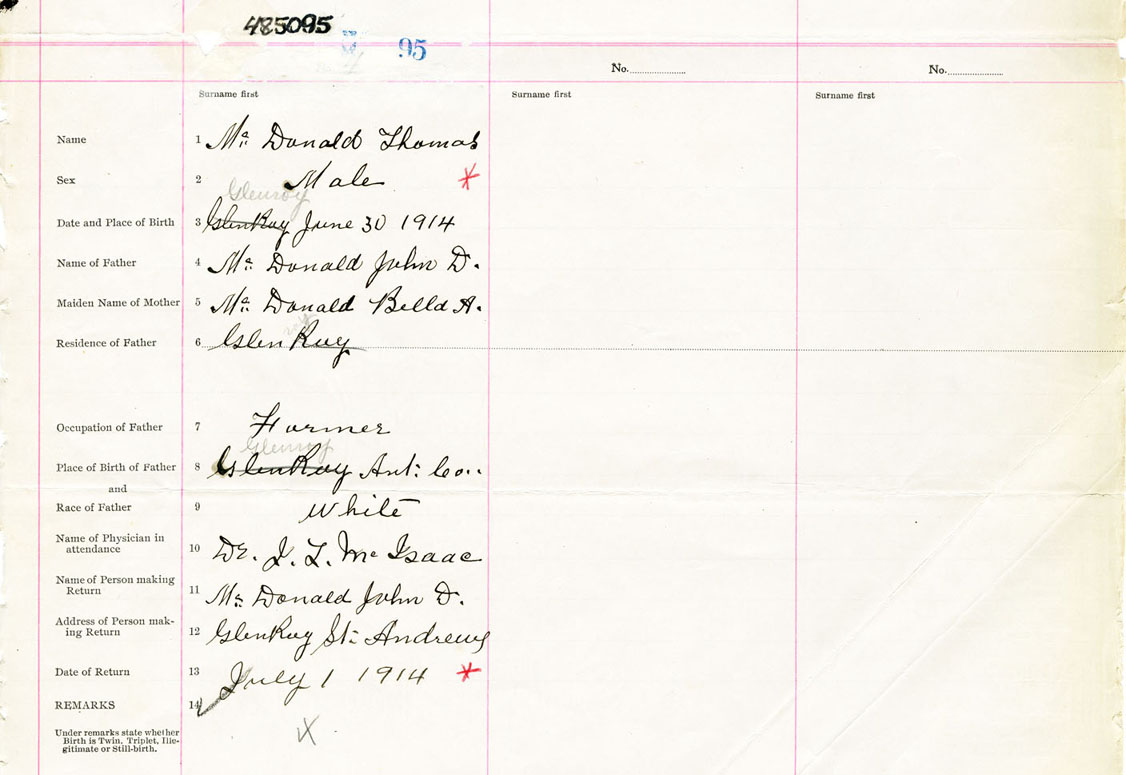 485095
95
No.
No.
Surname first
Surname first
Surname first
Name 1 Mc Donald Thomas
Sex 2 Male
Glenroy
Date and Place of Birth 3 GlenRoy June 30 1914
Name of Father 4 Mc Donald John D.
Maiden Name of Mother 5 Mc Donald Bella A.
Residence of Father 6 GlenRoy
Occupation of Father 7 Farmer
Glenroy
Place of Birth of Father 8 GlenRoy Ant: Co..
and
Race of Father 9 White
Name of Physician in
attendance 10 Dr. J. L. Mc Isaac
Name of Person making
Return 11 Mc Donald John D.
Address of Person mak-
ing Return 12 GlenRoy St: Andrews
Date of Return 13 July 1 1914
REMARKS 14
Under remarks state whether
Birth is Twin, Triplet, Ille-
gitimate or Still-birth.